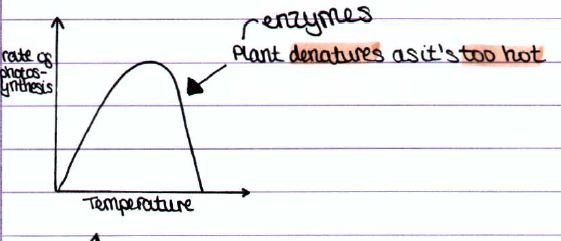 enzymes
Plant denatures as it's too hot
rate of
photos-
ynthesis
Temperature